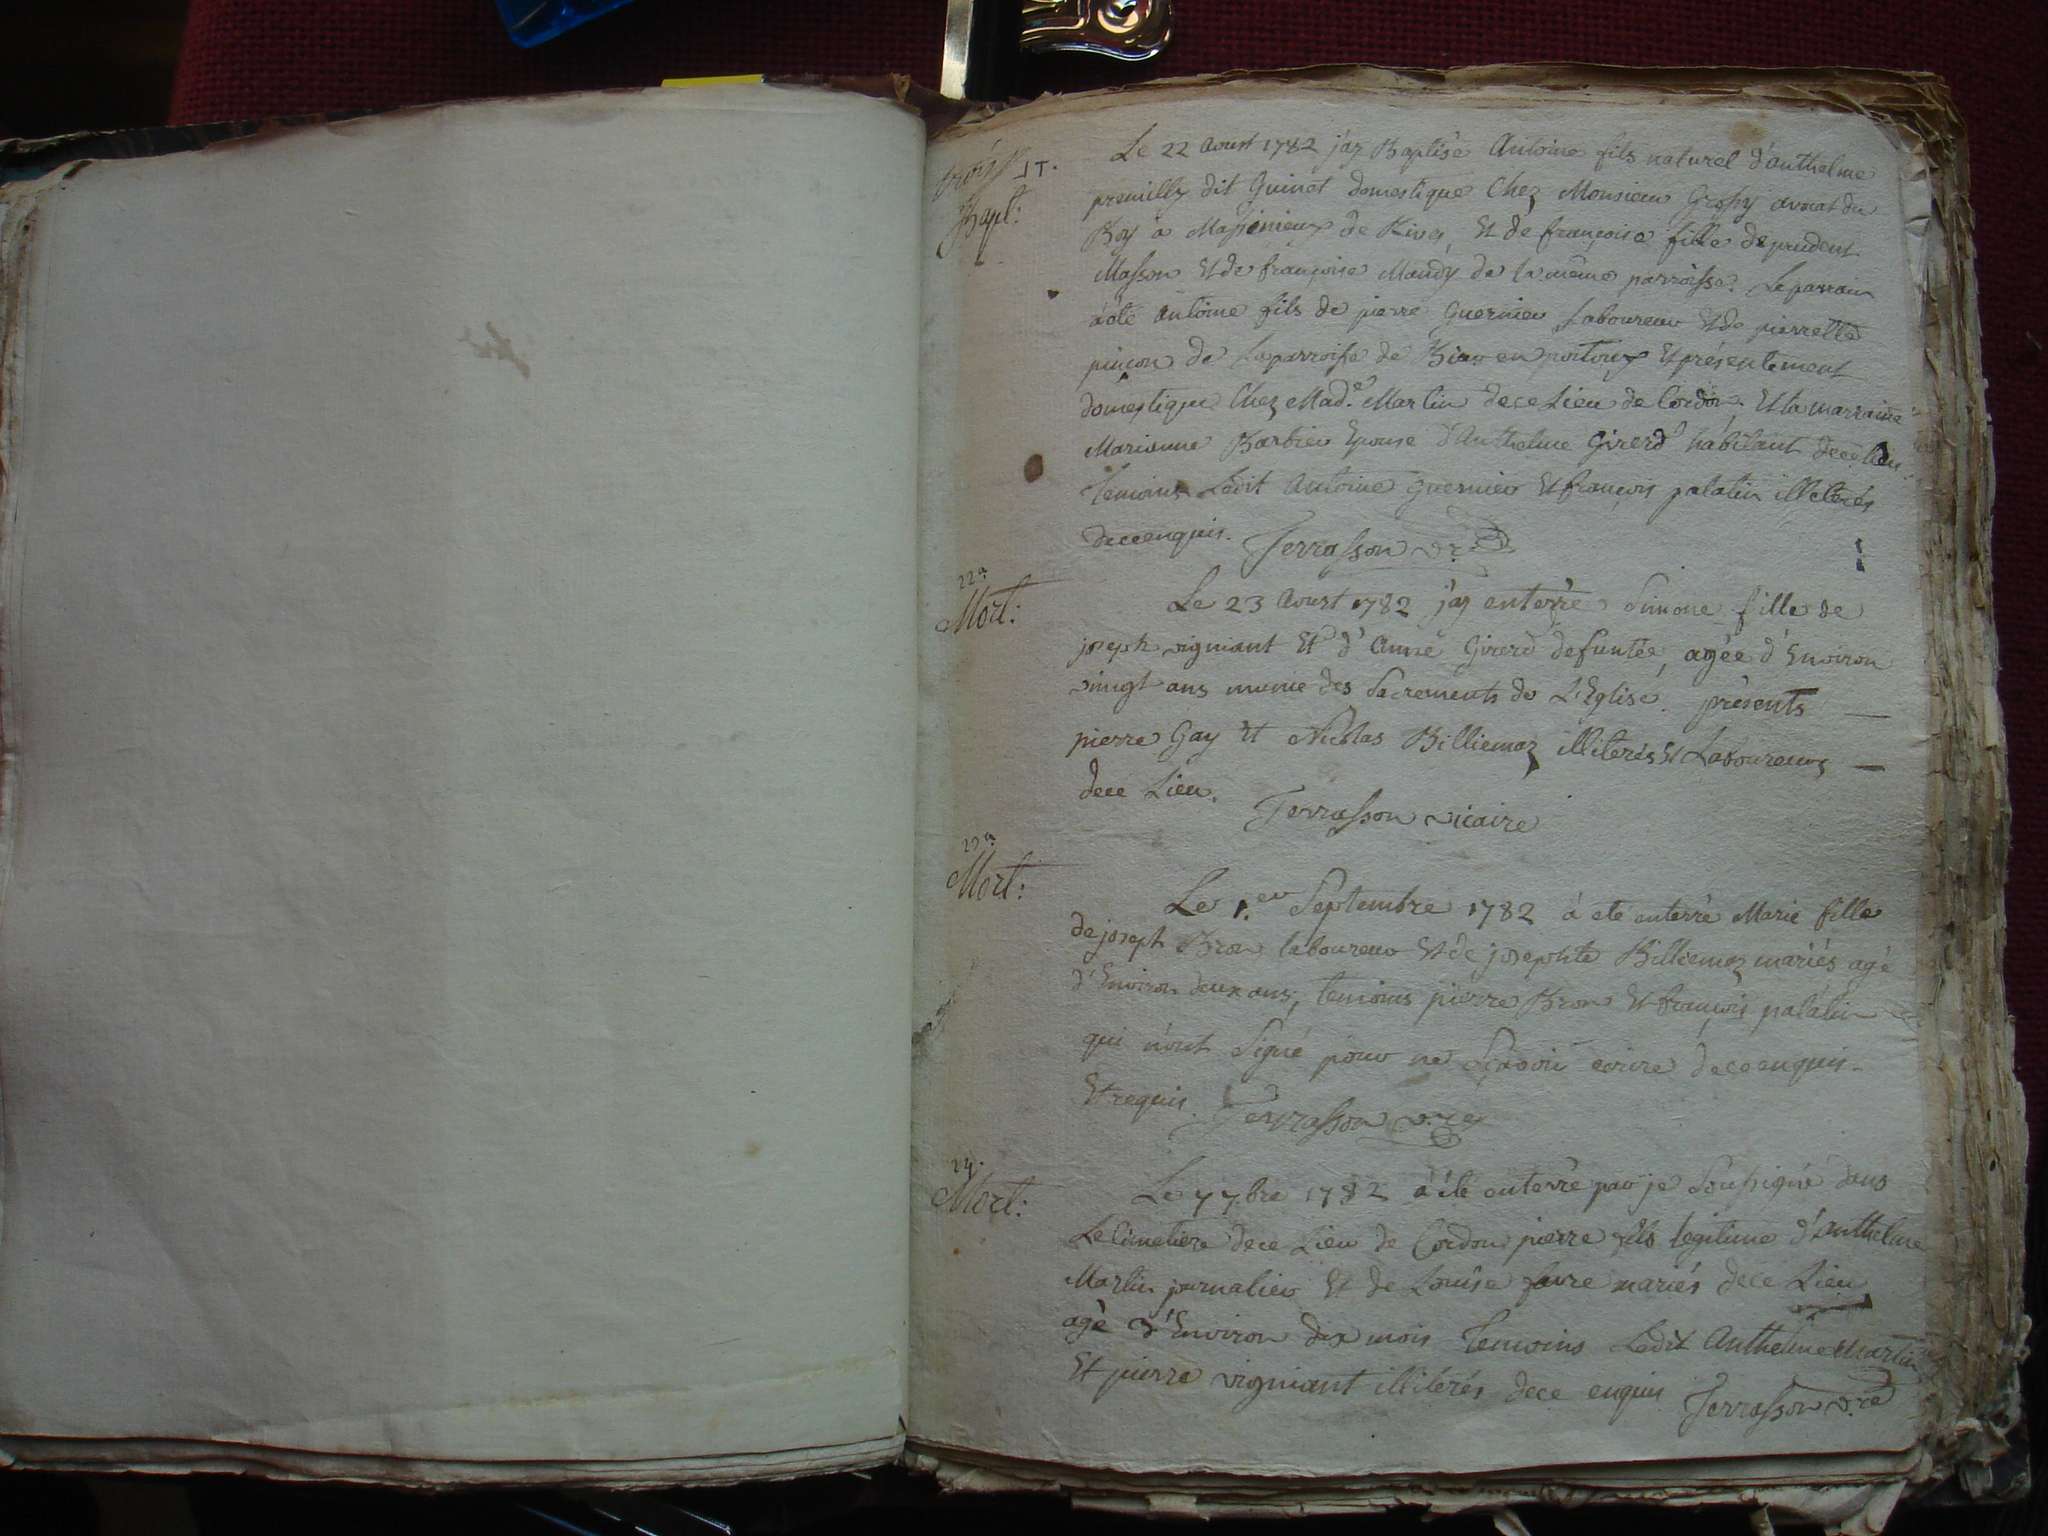 Bapt:
Le 22 Aoust 1782 j'ay Baptisé Antoine fils naturel d'anthelme
premilly dit Guinet domestique Chez Monsieur Grossy avocat du
Roy à Massinieux de Rives, Et de françoise fille de prudent
Masson Et de françoise Mandy de la même parroisse. Le parrain
à été Antoine fils de pierre Guernieu Laboureur Et de pierrette
pinçon de La parroisse de Et présentement
domestique Chez Mad.e Martin de ce Lieu de Cordon, Et la marraine
Marianne Barbier Epouse d'Anthelme Girerd habitant de ce lieu
Temoins Ledit Antoine Guernieu Et françois palatin illeterés
de ce enquis. Terrasson v.re
22.e
Mort:
Le 23 Aoust 1782 j'ay enterré Simone fille de
joseph vigniant Et d'Anne Girerd defuntée, agée d'Environ
vingt ans munie des Sacrements de L'Eglise. présents
pierre Gay Et Nicolas Billiemaz illiterés Et Laboureurs
de ce Lieu. Terrasson vicaire
Mort:
Le 1.er Septembre 1782 à eté enterré Marie fille
de joseph Bron laboureur Et de josephte Billiemaz mariés agé
d'Environ deux ans, temoins pierre Bron Et françois palatin
qui n'ont Signé pour ne Sçavoir ecrire de ce enquis
Et requis. Terrasson v.re
24.
Mort:
Le 7 7bre 1782 à été enterré par je Soussigné dans
Le Cimetiere de ce Lieu de Cordon pierre fils legitime d'Anthelme
Martin journalier Et de Louise favre mariés de ce Lieu
agé d'Environ dix mois Temoins Ledit Anthelme Martin
Et pierre vigniant illiterés de ce enquis Terrasson v.re